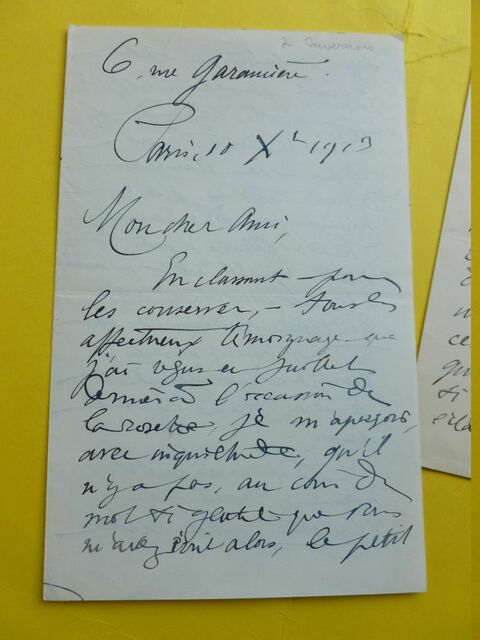 à Duvernois
6, rue Garancière.
Paris, 10 Xbre 1913
Mon cher Ami,
En classant – pour
les conserver, – tous les
affectueux témoignages que
j'ai reçus en Juillet
dernier à l'occasion de
la rosette, je m'aperçois,
avec inquiétude, qu'il
n'y a pas, au coin du
mot si gentil que vous
m'avez écrit alors, le petit